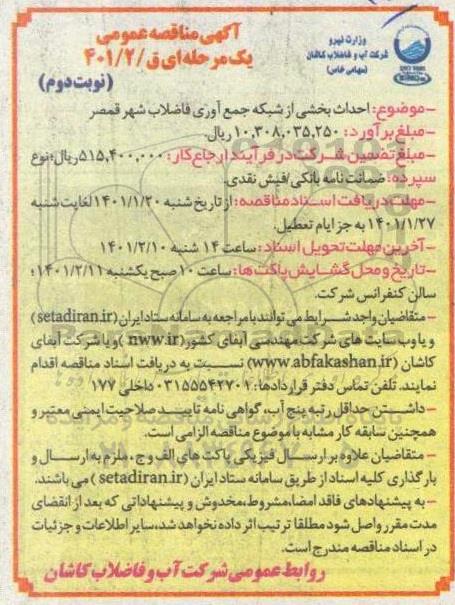 آگهی مناقصه عمومی
یک مرحله‌ای ق/۴۰۱/۲
(نوبت دوم)
وزارت نیرو
شرکت آب و فاضلاب کاشان
(سهامی خاص)
-موضوع: احداث بخشی از شبکه جمع آوری فاضلاب شهر قمصر
-مبلغ برآورد: ۱۰,۳۰۸,۰۳۵,۲۵۰ ریال.
-مبلغ تضمین شرکت در فرآیند ارجاع کار: ۵۱۵,۴۰۰,۰۰۰ریال؛نوع
سپرده: ضمانت نامه بانکی/فیش نقدی.
-مهلت دریافت اسناد مناقصه: از تاریخ شنبه ۱۴۰۱/۱/۲۰ لغایت شنبه
۱۴۰۱/۱/۲۷ به جز ایام تعطیل.
-آخرین مهلت تحویل اسناد: ساعت ۱۴ شنبه ۱۴۰۱/۲/۱۰
-تاریخ و محل گشایش پاکت ها: ساعت ۱۰ صبح یکشنبه ۱۴۰۱/۲/۱۱؛
سالن کنفرانس شرکت.
-متقاضیان واجد شرایط می توانند با مراجعه به سامانه ستاد ایران (setadiran.ir)
و یا وب سایت های شرکت مهندسی آبفای کشور(nww.ir) و یا شرکت آبفای
کاشان (www.abfakashan.ir) نسبت به دریافت اسناد مناقصه اقدام
نمایند. تلفن تماس دفتر قراردادها: ۰۳۱۵۵۵۴۲۷۰۱ داخلی ۱۷۷
-داشتن حداقل رتبه پنج آب، گواهی نامه تایید صلاحیت ایمنی معتبر و
همچنین سابقه کار مشابه با موضوع مناقصه الزامی است.
-متقاضیان علاوه بر ارسال فیزیکی پاکت های الف و ج، ملزم به ارسال و
بارگذاری کلیه اسناد از طریق سامانه ستاد ایران (setadiran.ir) می باشند.
-به پیشنهادهای فاقد امضا،مشروط،مخدوش و پیشنهاداتی که بعد از انقضای
مدت مقرر واصل شود مطلقا ترتیب اثر داده نخواهد شد،سایر اطلاعات و جزئیات
در اسناد مناقصه مندرج است.
روابط عمومی شرکت آب و فاضلاب کاشان